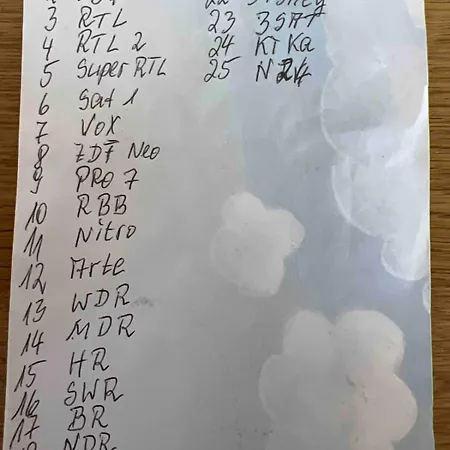 3 RTL
4 RTL 2
5 Super RTL
6 Sat 1
7 Vox
8 ZDF Neo
9 PRO 7
10 RBB
11 Nitro
12 Arte
13 WDR
14 MDR
15 HR
16 SWR
17 BR
18 NDR
22 Disney
23 3SAT
24 KiKa
25 N24